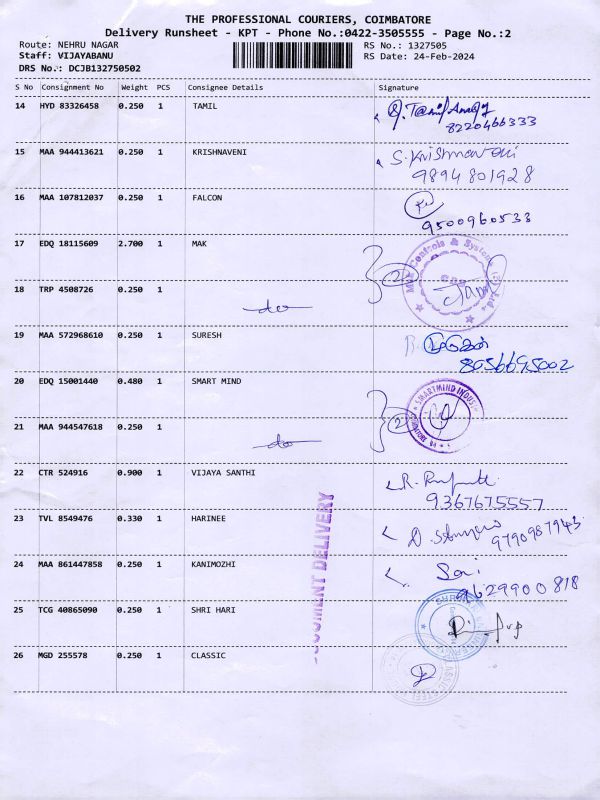 THE PROFESSIONAL COURIERS, COIMBATORE
Delivery Runsheet - KPT - Phone No.:0422-3505555 - Page No.:2
Route: NEHRU NAGAR RS No.: 1327505
Staff: VIJAYABANU RS Date: 24-Feb-2024
DRS No.: DCJB132750502
S No Consignment No Weight PCS Consignee Details Signature
14 HYD 83326458 0.250 1 TAMIL
8220466333
15 MAA 944413621 0.250 1 KRISHNAVENI S. Krishnaveni
9894801928
16 MAA 107812037 0.250 1 FALCON
9500960533
17 EDQ 18115609 2.700 1 MAK Controls & Systems
2
18 TRP 4508726 0.250 1 do
19 MAA 572968610 0.250 1 SURESH
8056695002
20 EDQ 15001440 0.480 1 SMART MIND SMARTMIND INDUS
2
21 MAA 944547618 0.250 1 do
22 CTR 524916 0.900 1 VIJAYA SANTHI R.
9367675557
23 TVL 8549476 0.330 1 HARINEE D.
9790987943
24 MAA 861447858 0.250 1 KANIMOZHI
9629900818
25 TCG 40865090 0.250 1 SHRI HARI
26 MGD 255578 0.250 1 CLASSIC
DOCUMENT DELIVERY